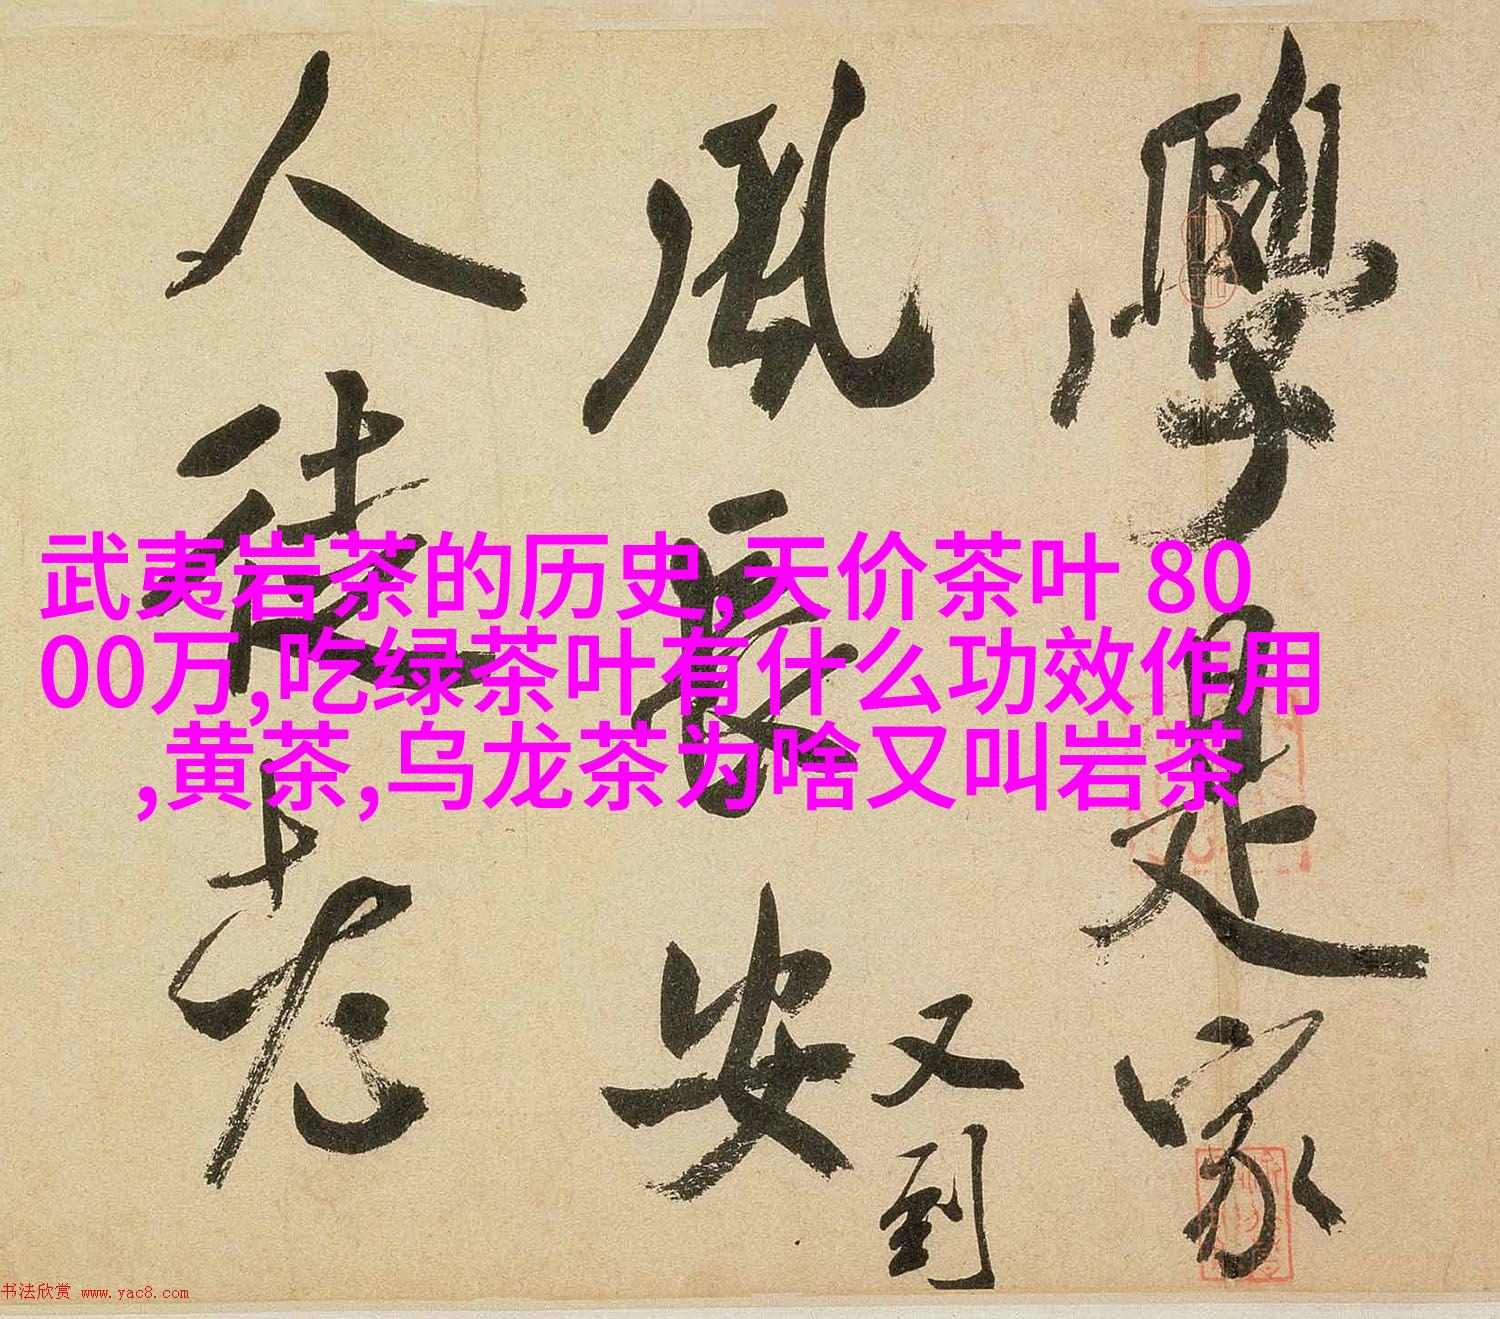 武夷岩茶的历史,天价茶叶 80
00万,吃绿茶叶有什么功效作用
,黄茶,乌龙茶为啥又叫岩茶
學是家
風家安
又到
人徒老
书法欣赏 www.yac8.com